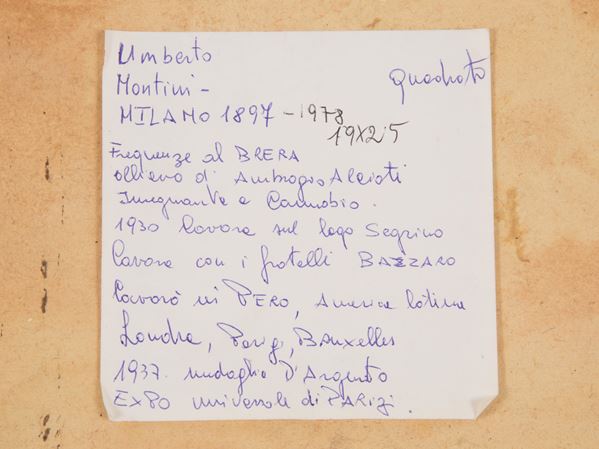 Umberto
Montini -
quadrato
MILANO 1897 - 1978
19x25
Frequenze al BRERA
allievo di Ambrogio Alciati
Insegnante a Cannobio.
1930 lavora sul lago Segrino
lavora con i fratelli BAZZARO
lavorò in PERO, America latina
Londra, Parigi, BRuxelles
1937. medaglia D'Argento
EXPO universale di PARIZi.